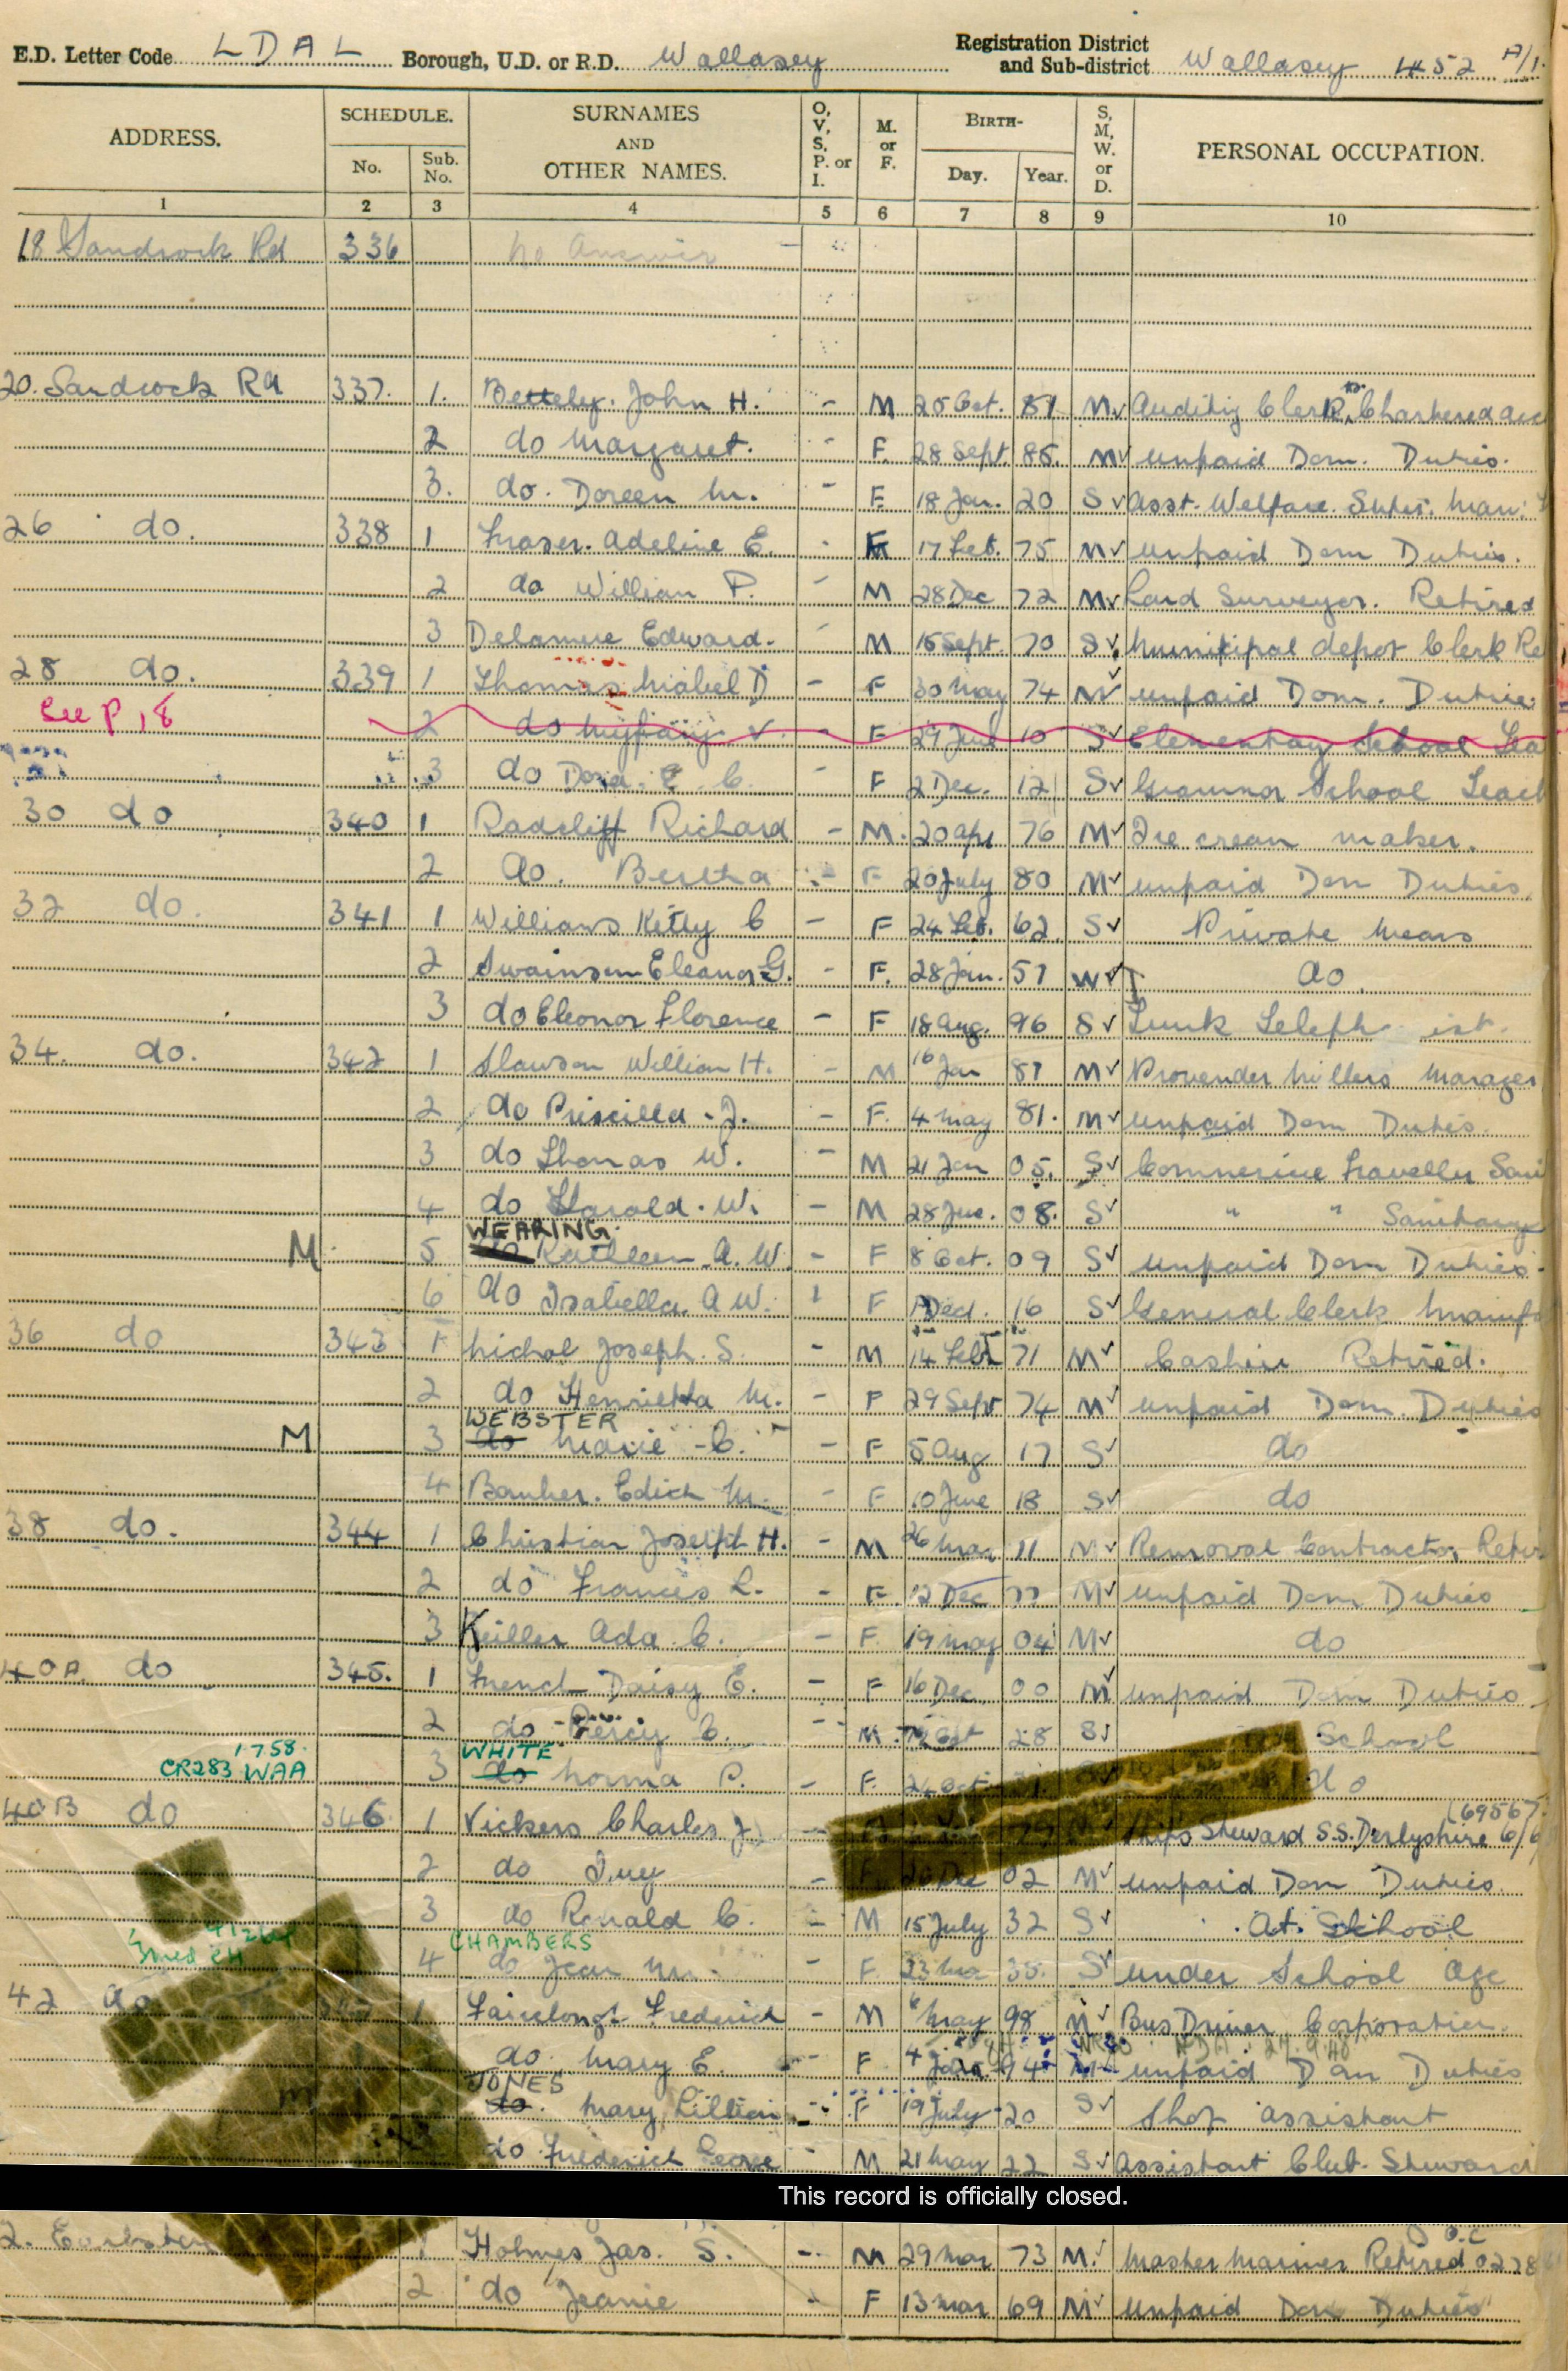 E.D. Letter Code LDAL Borough, U.D. or R.D. Wallasey Registration District and Sub-district Wallasey 452 A/1
ADDRESS. SCHEDULE. SURNAMES AND OTHER NAMES. O, V, S, P. or I. M. or F. BIRTH- S, M, W. or D. PERSONAL OCCUPATION.
No. Sub. No. Day. Year.
1 2 3 4 5 6 7 8 9 10
18 Sandrock Rd 336 No Answer -
20. Sandrock Rd 337. 1. Betteley. John H. - M 20 Oct. 81 M Auditing Clerk, Chartered acc
2 do Margaret. - F. 28 Sept. 85. M unpaid Dom. Duties.
3. do. Doreen M. - F. 18 Jan. 20 S Asst. Welfare Super.
26 do. 338 1 Fraser. Adeline E. - F 17 Feb. 75 M unpaid Dom Duties.
2 do William P. - M 28 Dec 72 M Land Surveyor. Retired
3 Delamere Edward. - M 15 Sept. 70 S Municipal depot Clerk Re
28 do. 339 1 Thomas Mabel D - F 30 May 74 unpaid Dom. Duties
See P 18 2 do Myfanwy V. - F 29 June 10 S Elementary School Tea
3 do Dora. E. C. - F 2 Dec. 12 S Grammar School Teach
30 do 340 1 Radcliff Richard - M. 20 Apl 76 M Ice cream maker.
2 do. Bertha - F 20 July 80 M unpaid Dom Duties
32 do. 341 1 Williams Kitty C - F 24 Feb. 62. S Private Means
2 Swainson Eleanor G. - F. 28 Jan. 57 W do.
3 do Eleonor Florence - F 18 Aug. 96 S Teleph ist.
34. do. 342 1 Slawson William H. - M 16 Jan 81 M Provender Millers Manager
2 do Priscilla. J. - F. 4 May 81. M unpaid Dom Duties.
3 do Thomas W. - M 21 Jan 05. S Traveller Sani
4 do Harold. W. - M 08. S " " Sanitary
WEARING.
M 5 do Kathleen A. W. - F 8 Oct. 09 S unpaid Dom Duties.
6 do Isabella. A W. F Dec. 16 S General Clerk
36 do 343 1 Nichol Joseph. S. - M 14 Feb 71 M Cashier Retired.
2 do Henrietta M. - F 29 Sept 74 M unpaid Dom. Duties
WEBSTER
M 3 do Marie C. - F 5 Aug 17 S do
4 Bamber. Edith M. - F 10 June 18 S do
38 do. 344 1 Christian Joseph H. - M 26 Mar 11 M Removal Contractor Retir
2 do Frances L. - F 12 Dec 77 M unpaid Dom Duties
3 Keiller Ada C. - F. 19 May 04 M do
40A. do 345. 1 French Daisy E. - F 16 Dec 00 M unpaid Dom Duties
2 do Percy C. - M. 28 S School
WHITE
1758. CR283 WAA 3 do Norma P. - F. 24 Oct do
40B do 346 1 Vickers Charles J - Ships Steward S.S. Derbyshire
2 do Ivy - Dec 02 M unpaid Dom Duties
3 do Ronald C. - M 15 July 32 S At School
CHAMBERS
4 do Jean M. - F. 23 35. S under School age
42 do 1 Frederick - M May 98 M Bus Driver Corporation.
do. Mary E. - F 4 94 M unpaid Dom Duties
JONES
do. Mary Lillian - F 19 July 20 S Shop assistant
do Frederick George - M 21 May 22 S Assistant Club Steward
This record is officially closed.
2. 1 Holmes Jas. S. - M 29 Mar 73 M. Master Mariner Retired
2 do Jeanie - F 13 Mar 69 M unpaid Dom Duties